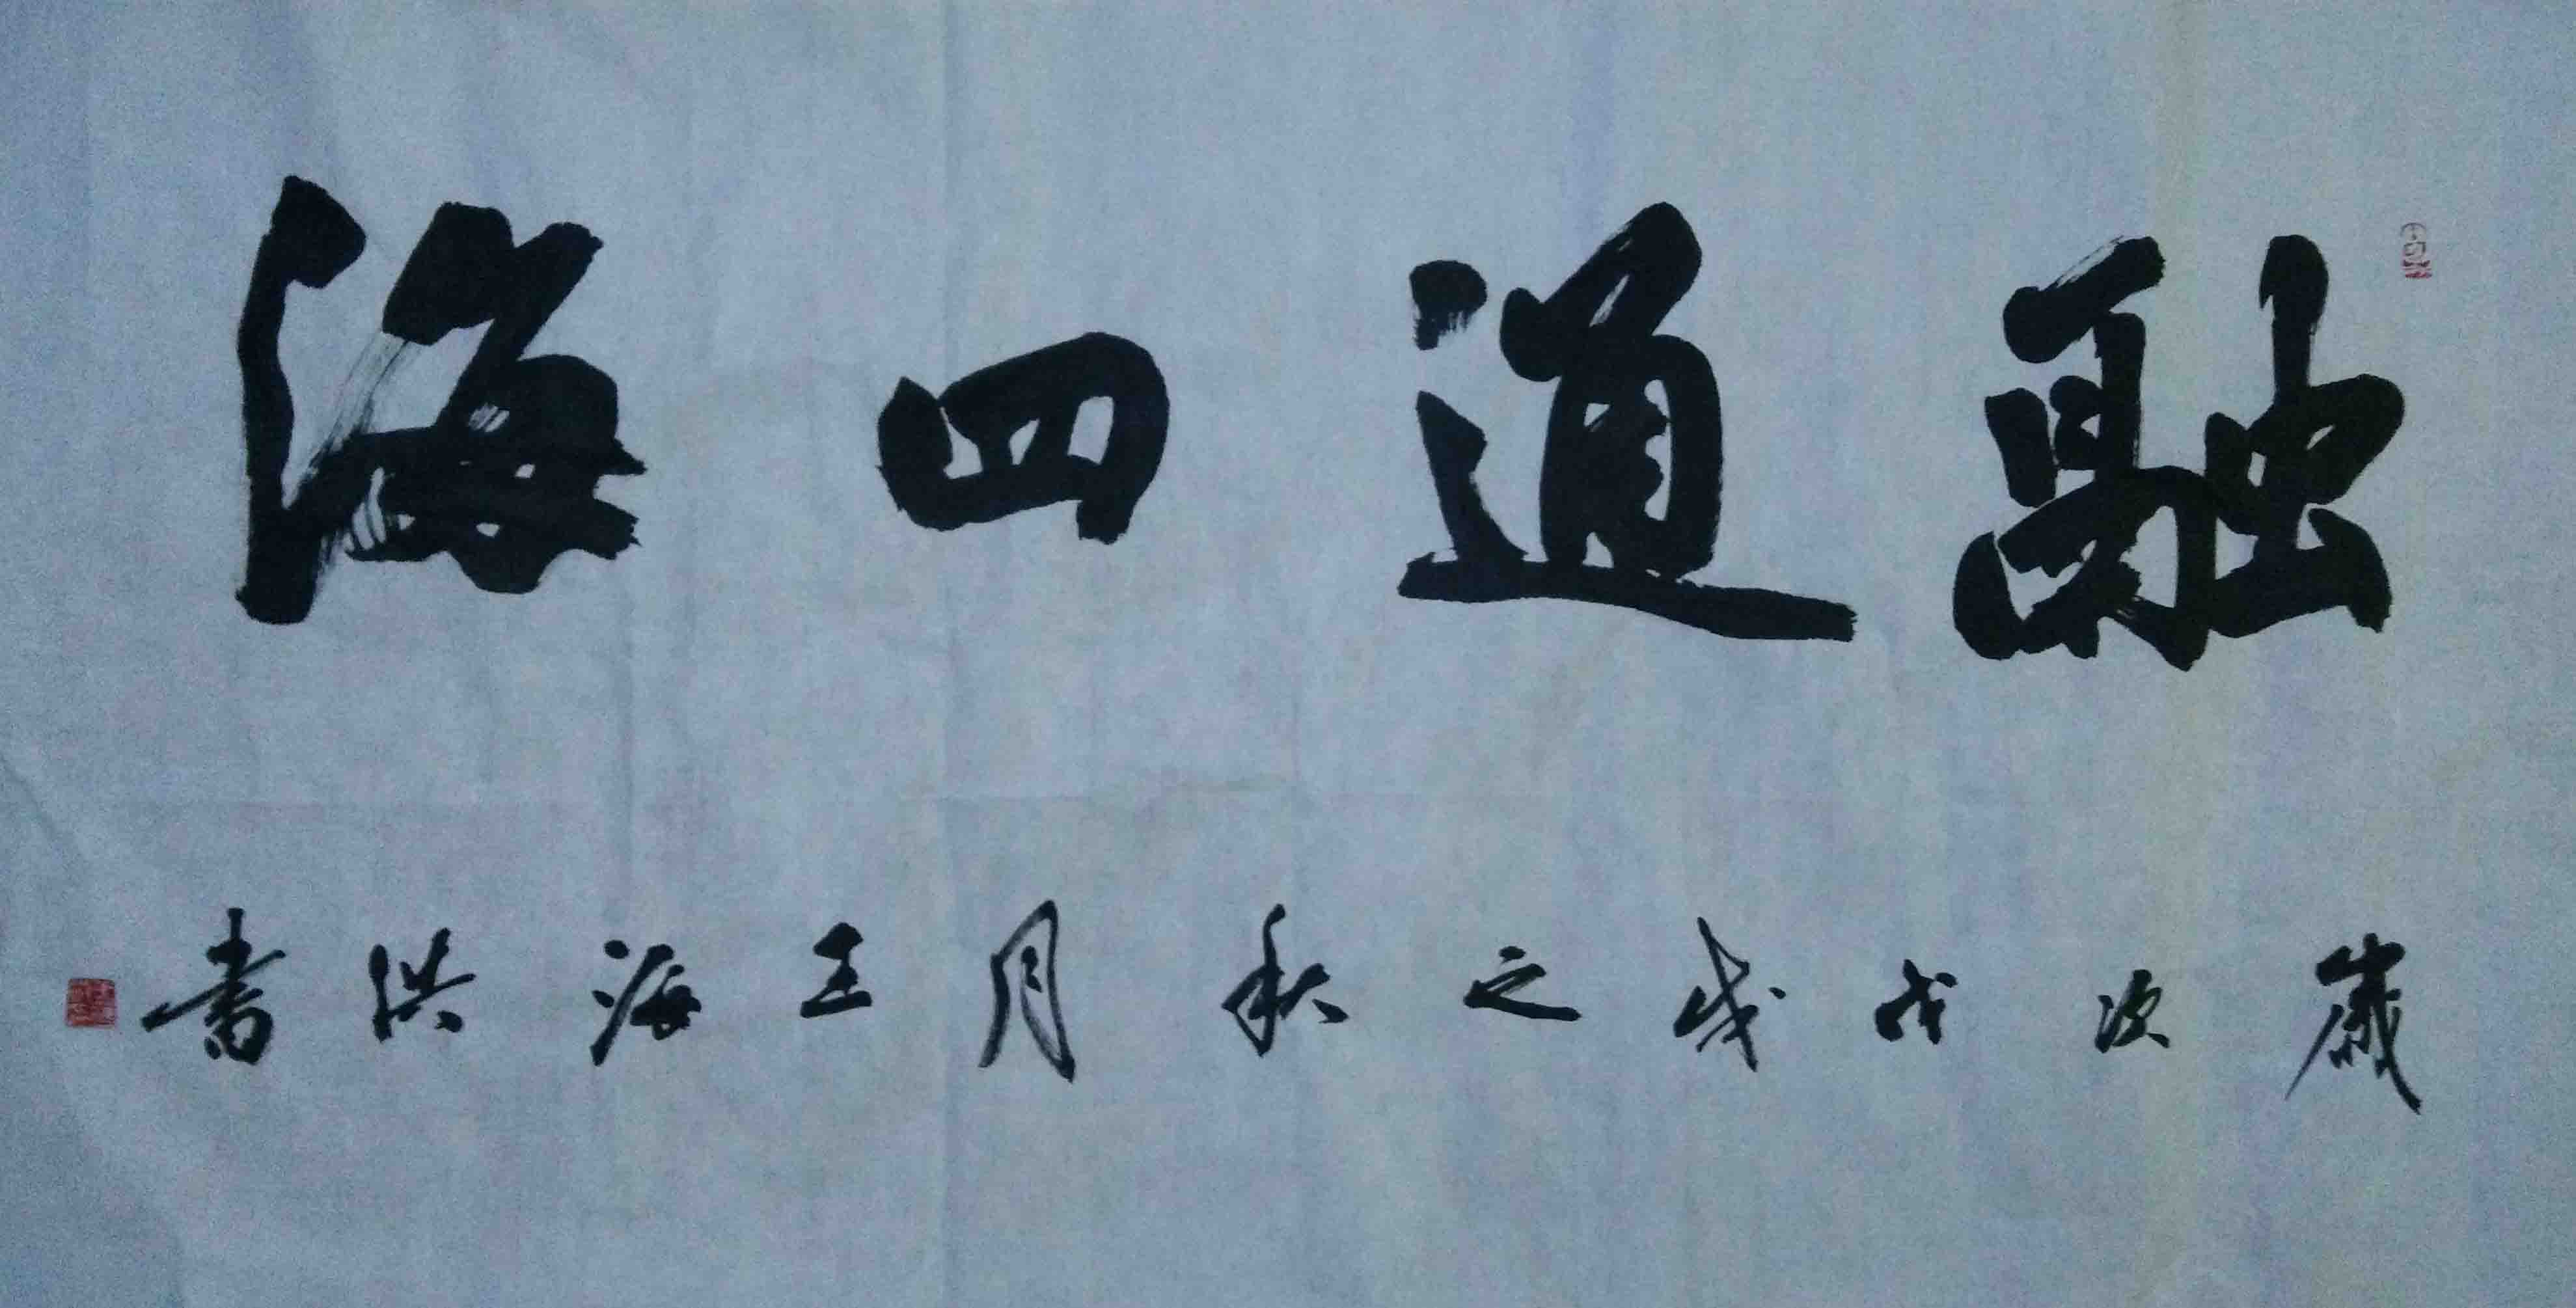 融通四海
歲次戊戌之秋月王海洪書